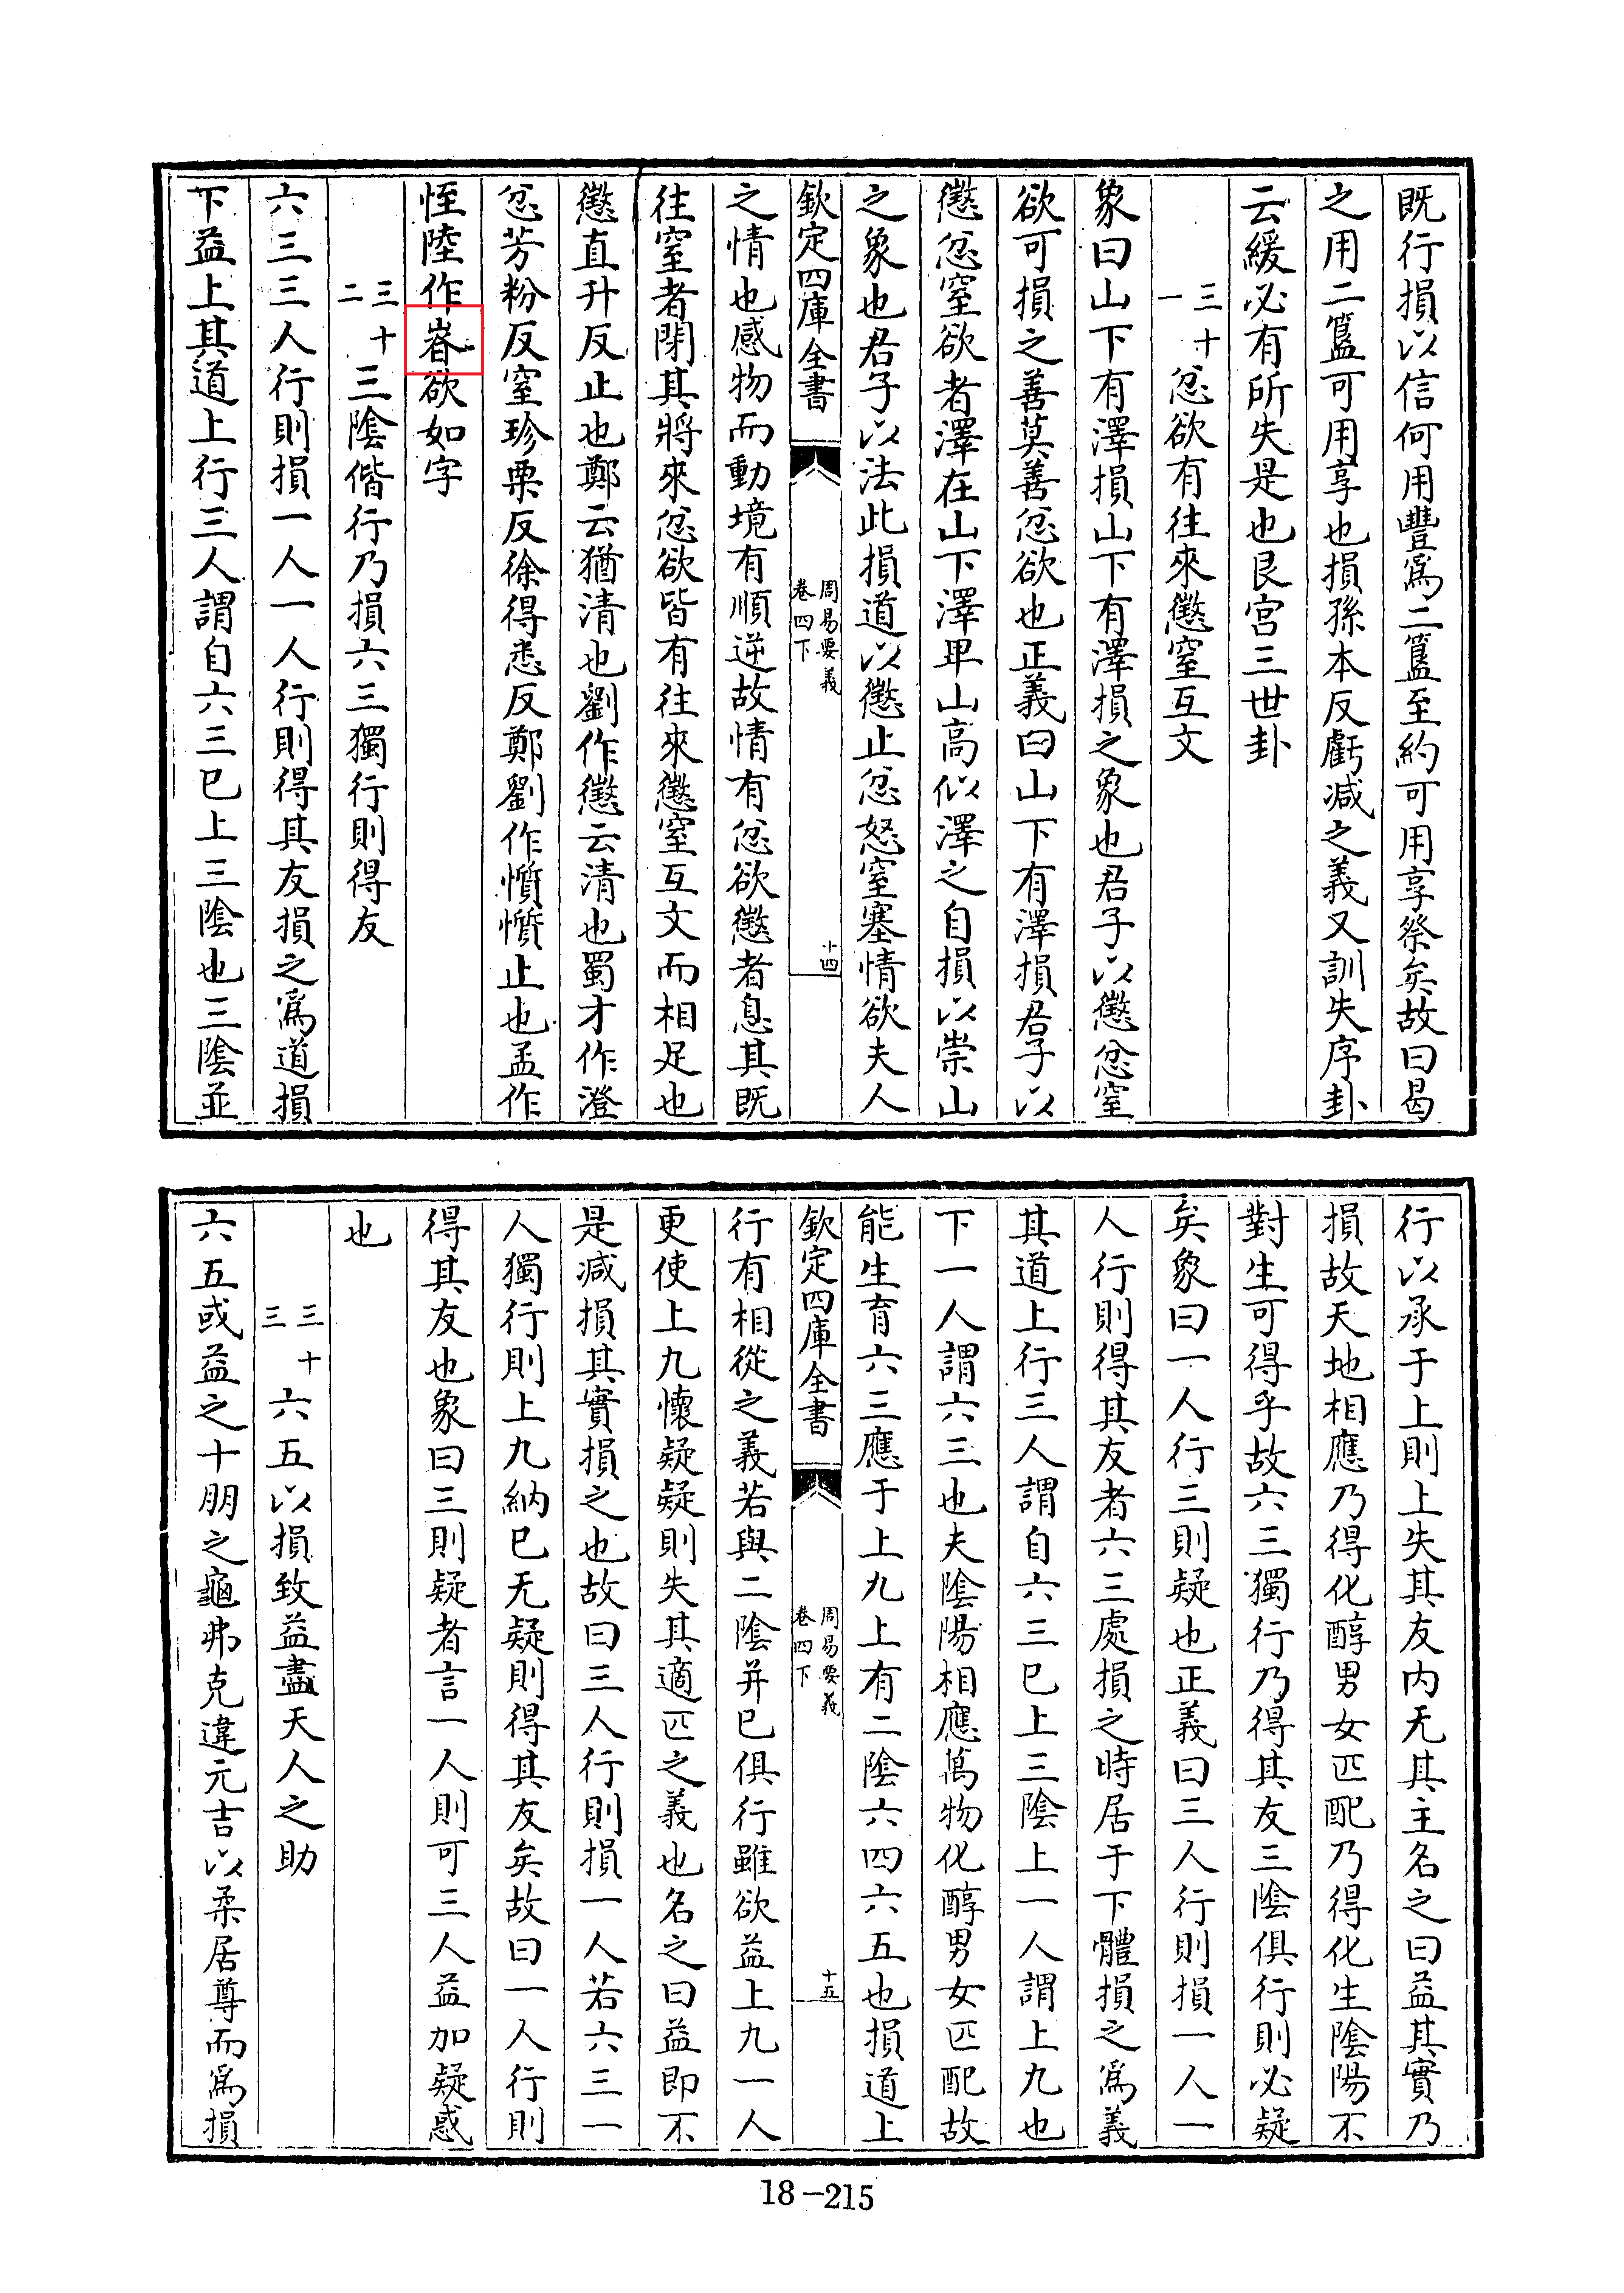 既行損以信何用豐爲二簋至約可用享祭矣故曰曷
之用二簋可用享也損孫本反虧减之義又訓失序卦
云緩必有所失是也艮宫三世卦
三十一 忿欲有往來懲窒互文
象曰山下有澤損山下有澤損之象也君子以懲忿窒
欲可損之善莫善忿欲也正義曰山下有澤損君子以
懲忿窒欲者澤在山下澤卑山高似澤之自損以崇山
之象也君子以法此損道以懲止忿怒窒塞情欲夫人
欽定四庫全書 周易要義卷四下 十四
之情也感物而動境有順逆故情有忿欲懲者息其既
往窒者閉其將來忿欲皆有往來懲窒互文而相足也
懲直升反止也鄭云猶清也劉作懲云清也蜀才作澄
忿芳粉反窒珍栗反徐得悉反鄭劉作懫懫止也孟作
恎陸作欲如字
三十二 三陰偕行乃損六三獨行則得友
六三三人行則損一人一人行則得其友損之爲道損
下益上其道上行三人謂自六三巳上三陰也三陰並
行以承于上則上失其友内无其主名之曰益其實乃
損故天地相應乃得化醇男女匹配乃得化生陰陽不
對生可得乎故六三獨行乃得其友三陰俱行則必疑
矣象曰一人行三則疑也正義曰三人行則損一人一
人行則得其友者六三處損之時居于下體損之爲義
其道上行三人謂自六三巳上三陰上一人謂上九也
下一人謂六三也夫陰陽相應萬物化醇男女匹配故
能生育六三應于上九上有二陰六四六五也損道上
欽定四庫全書 周易要義卷四下 十五
行有相從之義若與二陰并巳俱行雖欲益上九一人
更使上九懷疑疑則失其適匹之義也名之曰益即不
是减損其實損之也故曰三人行則損一人若六三一
人獨行則上九納巳无疑則得其友矣故曰一人行則
得其友也象曰三則疑者言一人則可三人益加疑惑
也
三十三 六五以損致益盡天人之助
六五或益之十朋之龜弗克違元吉以柔居尊而爲損
18-215